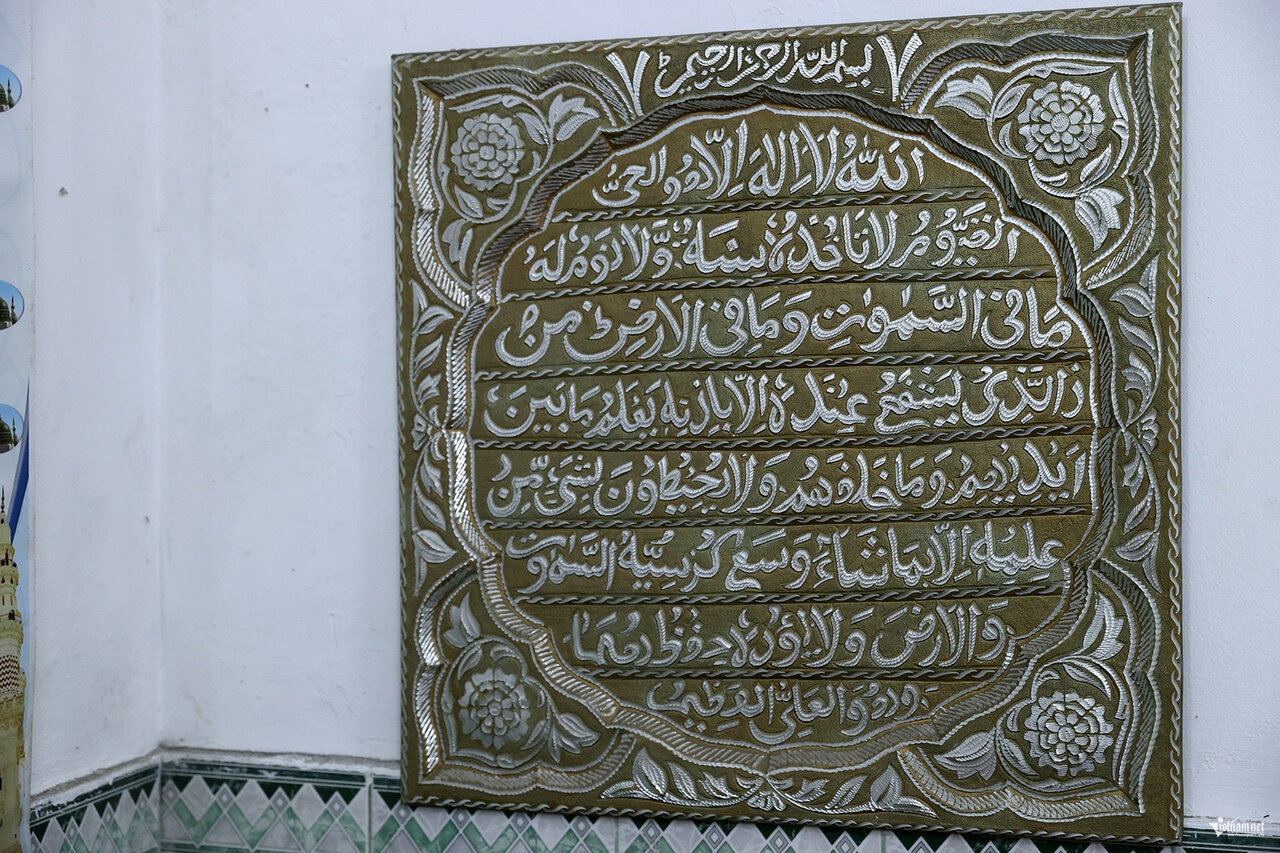 بسم الله الرحمن الرحيم
اَللّٰهُ لَا اِلٰهَ اِلَّا هُوَ الْحَىُّ
الْقَيُّوْمُ لَا تَاْخُذُهٗ سِنَةٌ وَّلَا نَوْمٌ لَهٗ
مَا فِى السَّمٰوٰتِ وَمَا فِى الْاَرْضِ ط مَنْ
ذَا الَّذِىْ يَشْفَعُ عِنْدَهٗ اِلَّا بِاِذْنِهٖ يَعْلَمُ مَا بَيْنَ
اَيْدِيْهِمْ وَمَا خَلْفَهُمْ وَلَا يُحِيْطُوْنَ بِشَىْءٍ مِّنْ
عِلْمِهٖ اِلَّا بِمَا شَاءَ وَسِعَ كُرْسِيُّهُ السَّمٰوٰتِ
وَالْاَرْضَ وَلَا يَؤُدُهٗ حِفْظُهُمَا
وَهُوَ الْعَلِىُّ الْعَظِيْمُ
vietnamnet